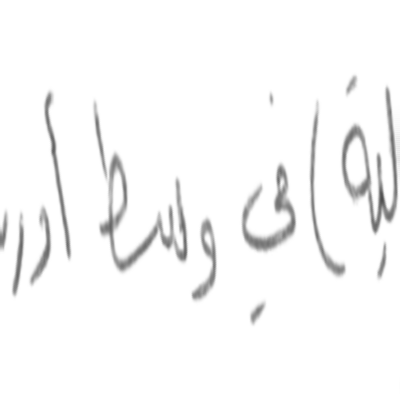 لية) في وسط أدر